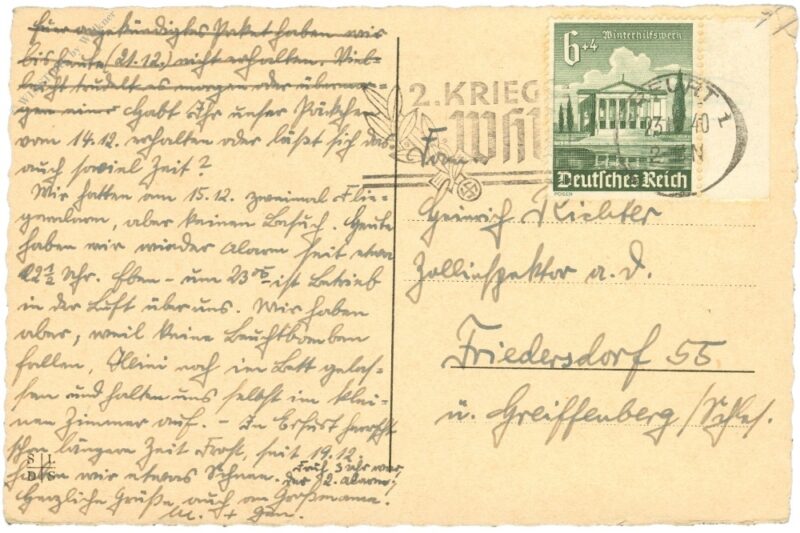 Euer angekündigtes Paket haben wir
bis heute (21.12.) nicht erhalten. Viel-
leicht trudelt es morgen oder übermor-
gen ein. Habt Ihr unser Päckchen
vom 14.12. erhalten oder läßt sich das
auch soviel Zeit?
Wir hatten am 15.12. zweimal Flie-
geralarm, aber keinen Besuch. Heute
haben wir wieder Alarm seit etwa
22½ Uhr. Eben - um 23 ist Betrieb
in der Luft über uns. Wir haben
aber, weil keine Leuchtbomben
fallen, noch im Bett gelas-
sen und halten uns selbst im klei-
nen Zimmer auf. - In Erfurt herrscht
schon längere Zeit Frost, seit 19.12.
haben wir etwas Schnee. Früh 3 Uhr war
der 2. Alarm!
Herzliche Grüße, auch an Großmama.
M. +
S I
D S
2. KRIEGS
WHW
6+4 Winterhilfswerk
Deutsches Reich
POSEN
ERFURT 1
23 40
Heinrich Richter
Zollinspektor a. D.
Friedersdorf 55
ü. Greiffenberg/Schles.